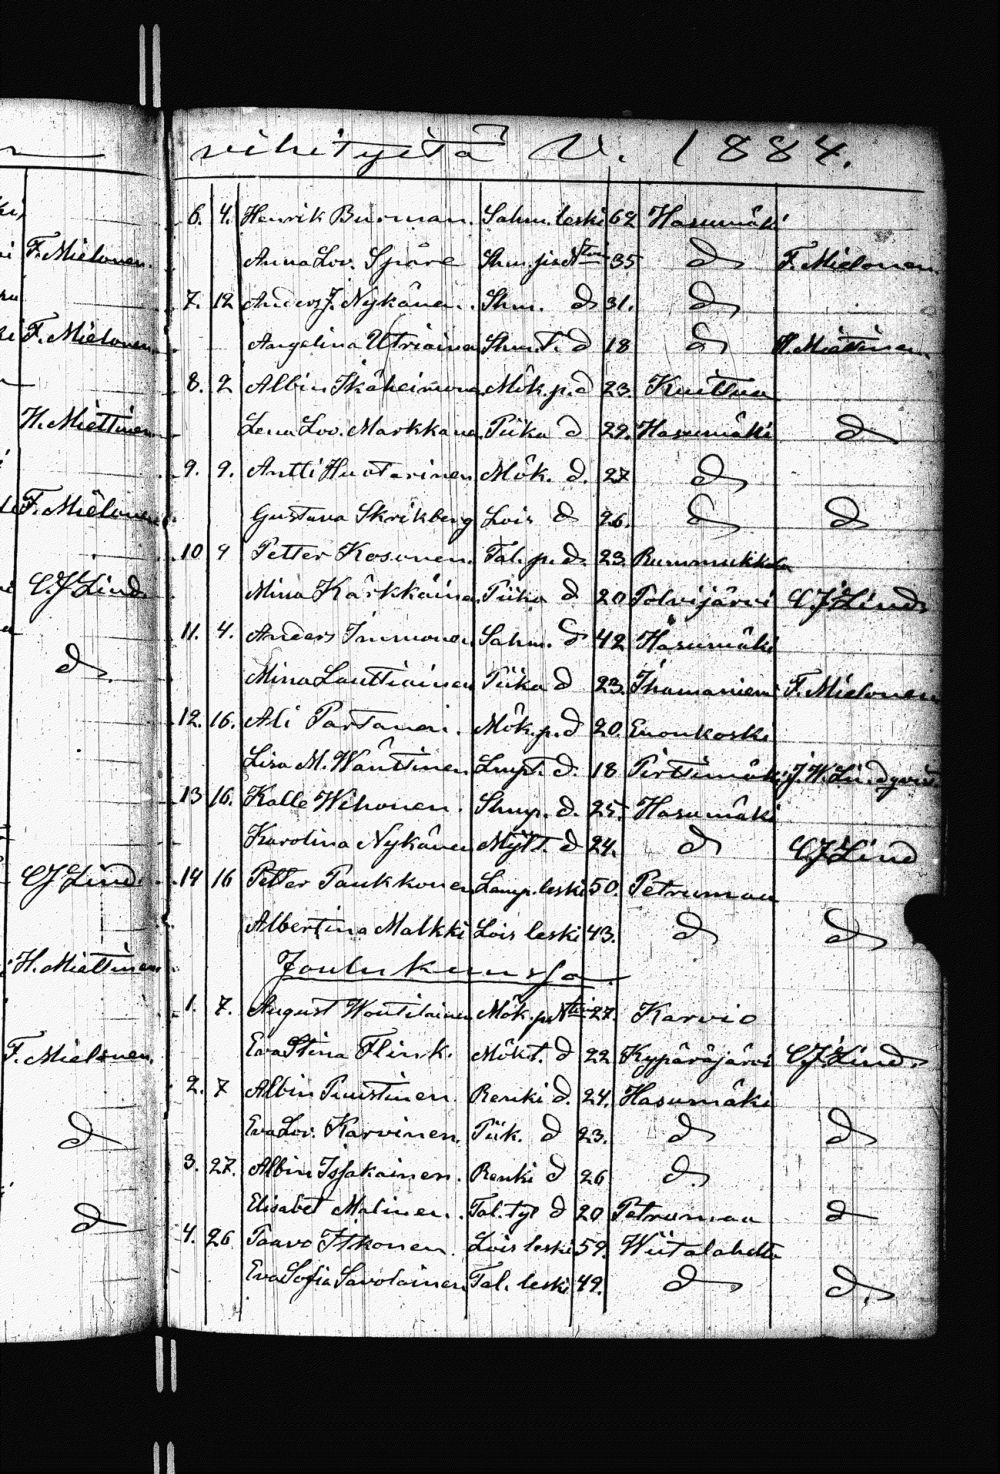 vihityitä V. 1884.
F. Mielonen.
F. Mielonen
H. Miettinen
F. Mielonen
C. J. Lind
d
C J Lind
H. Miettinen
F. Mielonen.
d
d
6. 4. Henrik Burman. Sahm. leski 62 Hasumäki
Anna Lov. Späre 35 d F. Mielonen
7. 12 Anders J. Nykänen. Shm. d 31. d
Angelina Utriaina Shm. T. d 18 d H. Miettinen
8. 2 Albin Ikäheimona Mök. p. d 23. Knittua
Lena Lov. Markkana Piika d 29. Hasumäki d
9. 9. Antti Huotarinen Mök. d. 27 d
Gustava Skrikberg Lois d 26. d d
10 9 Petter Kosonen. Tal. p. d. 23. Rummukkala
Mina Kärkkäina Piika d 20 Polvijärvi C. J. Lind
11. 4. Anders Immonen Sahm. d 42 Hasumäki
Mina Lauttiainen Piika d 23. Ihamaniemi F. Mielonen
12. 16. Ali Partanen. Mök. p. d 20. Enonkoski
Lisa M. Wänttinen Lmpt. d. 18 Pirttimäki J. W. Lindqvist
13 16. Kalle Wihonen. Shmp. d. 25. Hasumäki
Karolina Nykänen Mylt. d 24. d C J Lind
14 16 Petter Paukkonen Lamp. leski 50. Petrumaa
Albertina Malkki Lois leski 43. d d
Joulukuussa
1. 7. August Woutilainen Mök. p. 27 Karvio
Eva Stina Flink. Mökt. d 22 Kypäräjärvi C J Lind
2. 7 Albin Puustinen. Renki d. 24. Hasumäki
Eva Lov. Karvinen. Piik. d 23. d d
3. 27. Albin Issakainen. Renki d 26 d.
Elisabet Malinen. Tal. tyt d 20 Petrumaa d
4. 26 Paavo Itkonen. Lois leski 59. Wiitalahti
Eva Sofia Savolainen Tal. leski 49. d d.